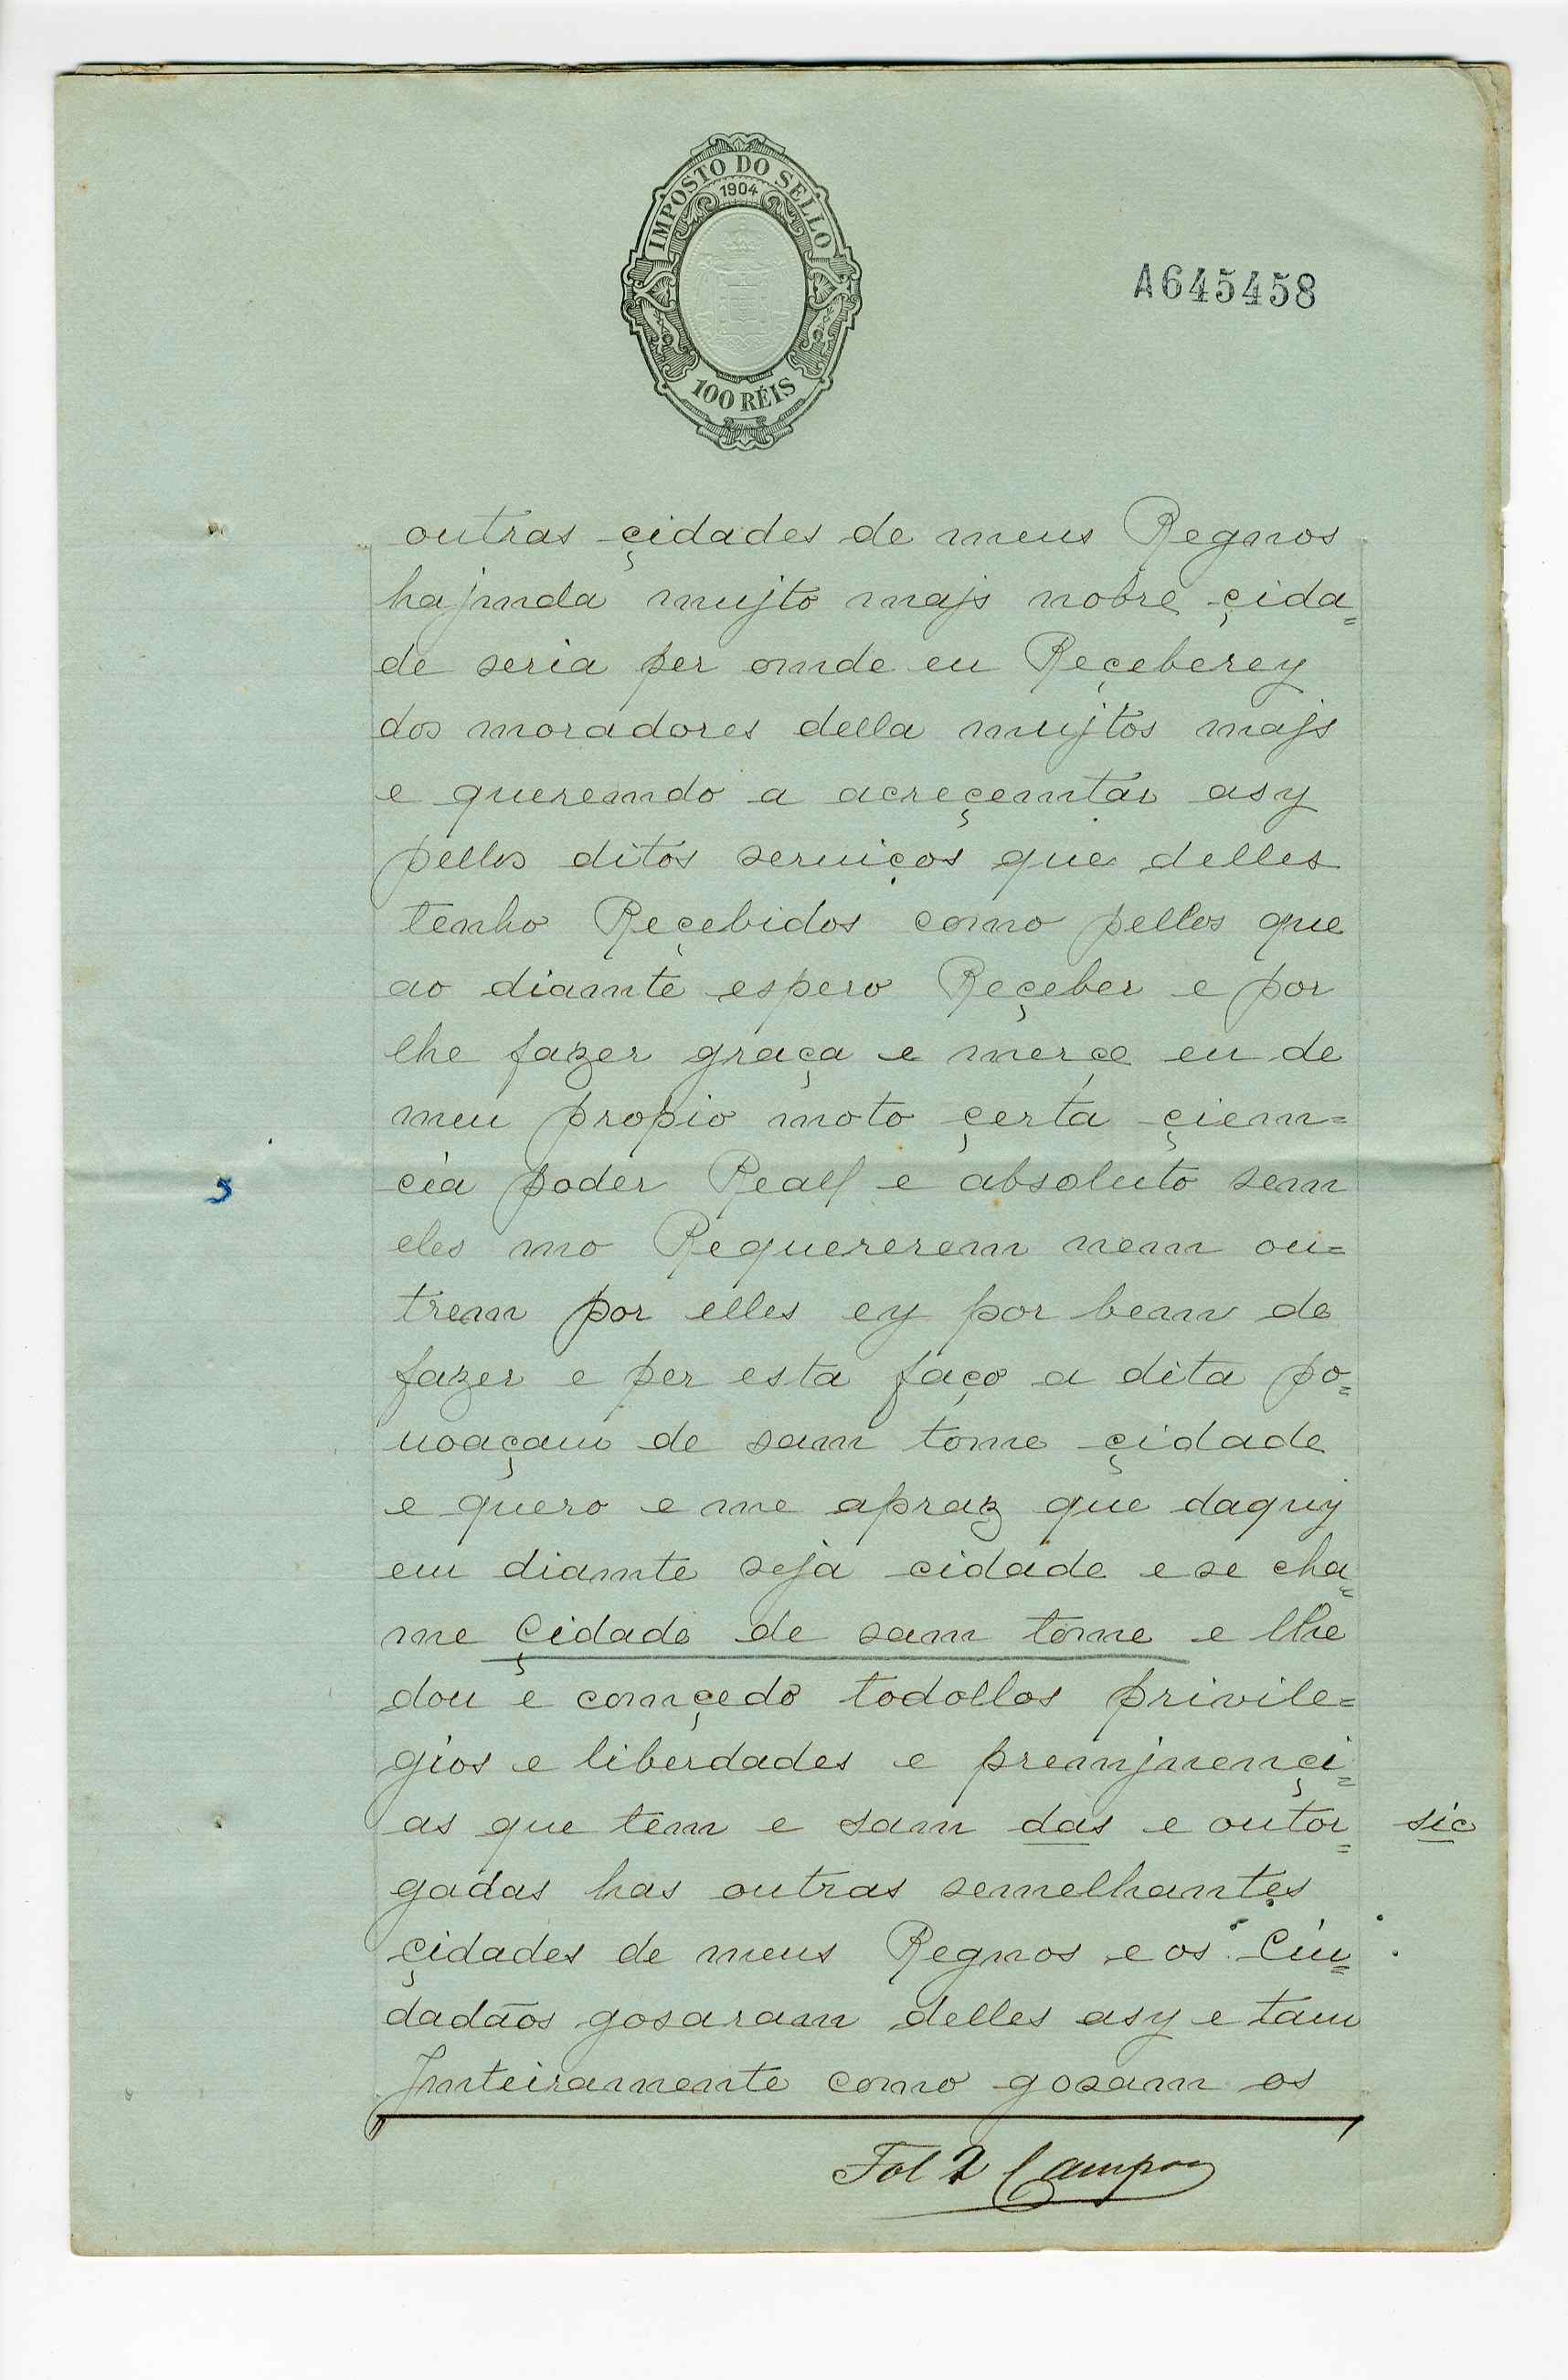 IMPOSTO DO SELLO
1904
100 RÉIS
A645458
outras çidades de meus Regnos
hajnda mujto majs nobre çida=
de seria per omde eu Reçeberey
dos moradores della mujtos majs
e queremdo a acreçemtar asy
pellos ditos seruiços que delles
tenho Reçebidos como pellos que
ao diamte espero Reçeber e por
lhe fazer graça e merçe eu de
meu propio moto çerta çiem=
cia poder Reall e absoluto sem
eles mo Requererem nem ou=
trem por elles ey por bem de
fazer e per esta faço a dita po=
uoaçam de sam tome çidade
e quero e me apraz que daquy
em diamte seja cidade e se cha=
me Çidade de sam tome e lhe
dou e comçedo todollos privile=
gios e liberdades e premjnençi=
as que tem e sam das e outor= sic
gadas has outras semelhantes
çidades de meus Regnos e os Ciu=
dadãos gosaram delles asy e tam
Jmteiramente como gosam os
Fol 2 Campos
5